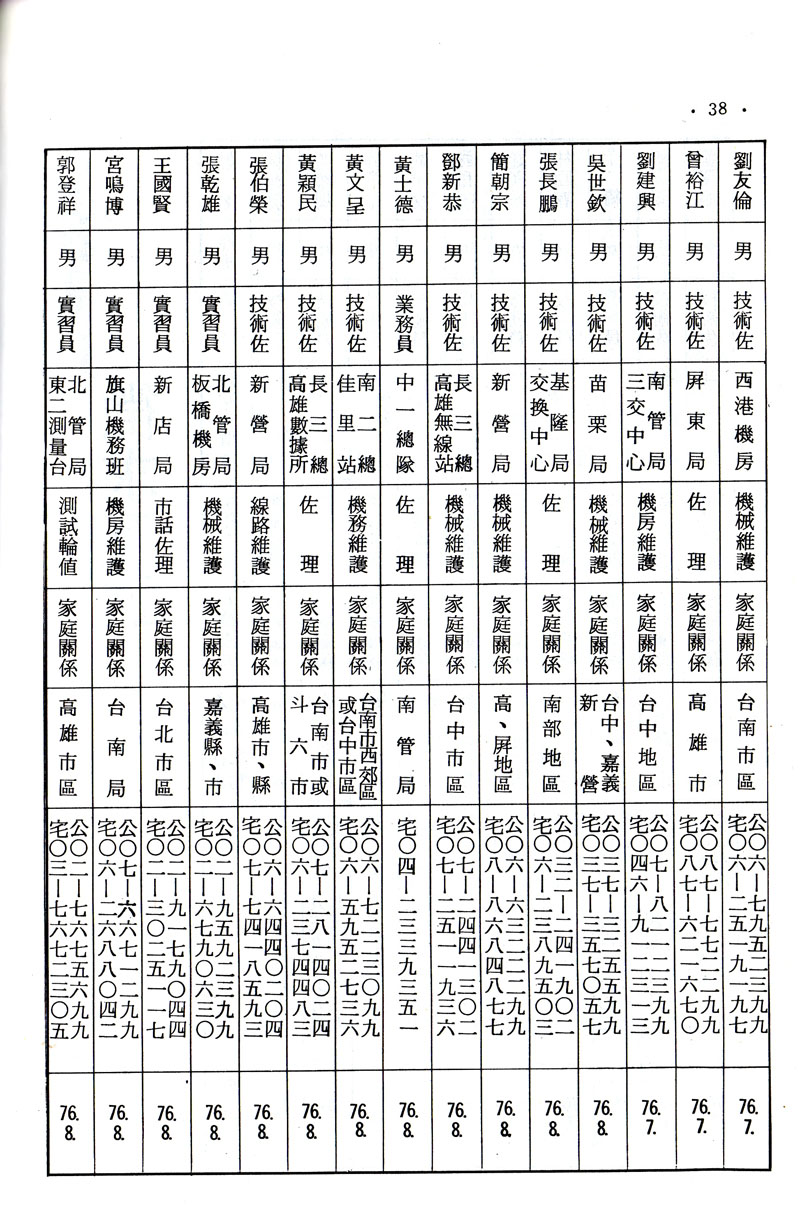 • 38 •
劉友倫 男 技術佐 西港機房 機械維護 家庭關係 台南市區 公〇六—七九五二三九九 宅〇六—二五一九一九七 76.7.
曾裕江 男 技術佐 屏東局 佐理 家庭關係 高雄市 公〇八七—七七二二九九 宅〇八七—六二一六七〇 76.7.
劉建興 男 技術佐 南管局三交中心 機房維護 家庭關係 台中地區 公〇七—八二一二三九九 宅〇四六—九一二三一三 76.7.
吳世欽 男 技術佐 苗栗局 機械維護 家庭關係 台中、嘉義新營 公〇三七—三二五五九九 宅〇三七—三五七〇五七 76.8.
張長鵬 男 技術佐 基隆局交換中心 佐理 家庭關係 南部地區 公〇三二—二四一九〇二 宅〇六—二三八九五〇三 76.8.
簡朝宗 男 技術佐 新營局 機械維護 家庭關係 高、屏地區 公〇六—六三二二二九九 宅〇八—八六八四八七七 76.8.
鄧新恭 男 技術佐 長三總高雄無線站 機械維護 家庭關係 台中市區 公〇七—二四四一三〇二 宅〇七—二五一一九三六 76.8.
黃士德 男 業務員 中一總隊 佐理 家庭關係 南管局 宅〇四—二三三九三五一 76.8.
黃文呈 男 技術佐 南二總佳里站 機務維護 家庭關係 台南市西郊區或台中市區 公〇六—七二二三〇九九 宅〇六—五九五二七三六 76.8.
黃穎民 男 技術佐 長三總高雄數據所 佐理 家庭關係 台南市或斗六市 公〇七—二八一四〇二四 宅〇六—二三七四四八三 76.8.
張伯榮 男 技術佐 新營局 線路維護 家庭關係 高雄市、縣 公〇六—六四四〇二〇四 宅〇七—七四一八五九三 76.8.
張乾雄 男 實習員 北管局板橋機房 機械維護 家庭關係 嘉義縣、市 公〇二—九五九二三九九 宅〇二—六七九〇六三〇 76.8.
王國賢 男 實習員 新店局 市話佐理 家庭關係 台北市區 公〇二—九一七九〇四四 宅〇二—三〇二五一一七 76.8.
宮鳴博 男 實習員 旗山機務班 機房維護 家庭關係 台南局 公〇七—六六七一二九九 宅〇六—二六八八〇四二 76.8.
郭登祥 男 實習員 北管局東二測量台 測試輪值 家庭關係 高雄市區 公〇二—七六七五六九九 宅〇三—七六七二三〇五 76.8.